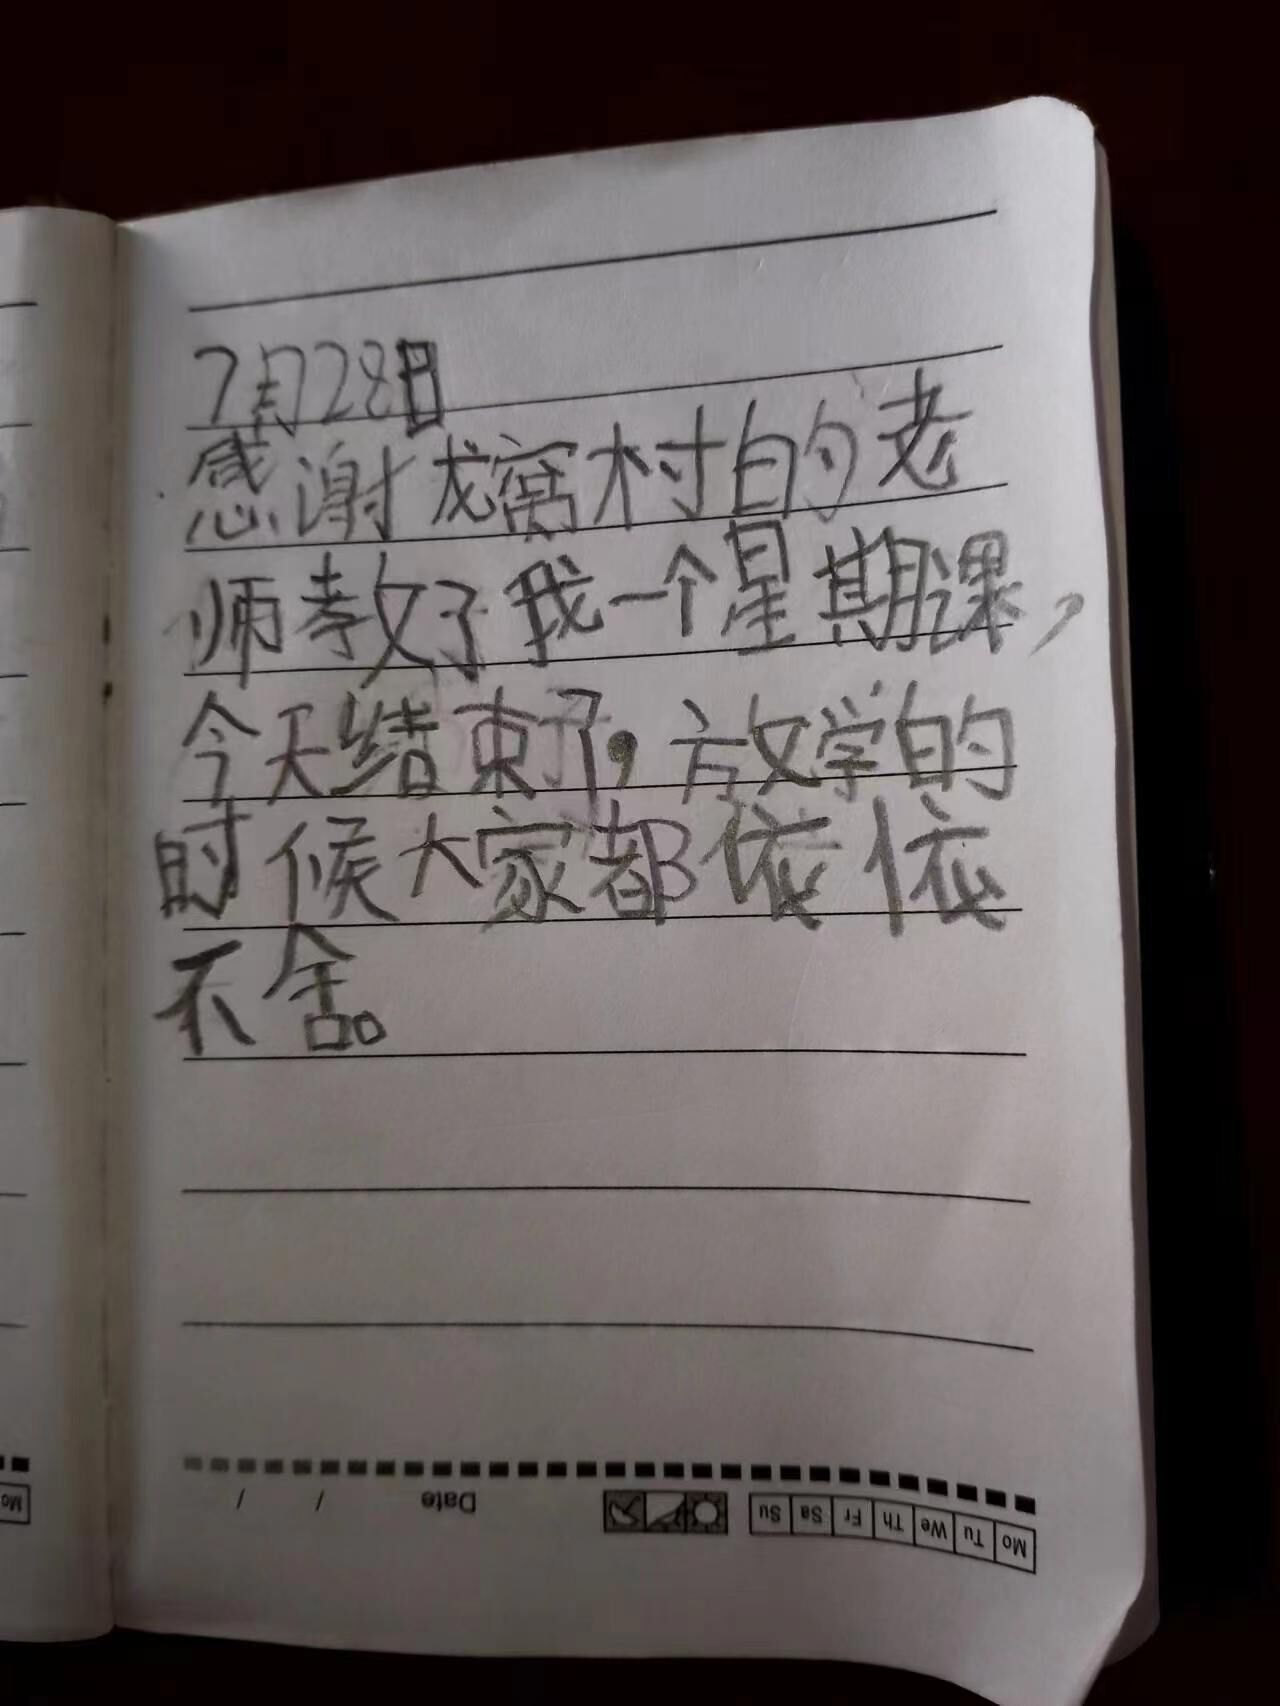 7月28日
感谢龙窝村的老
师教了我一个星期课，
今天结束了，放学的
时候大家都依依
不舍。
Date / /
Mo Tu We Th Fr Sa Su
Mo